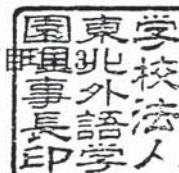 学校法人
東北外語学
園理事長印